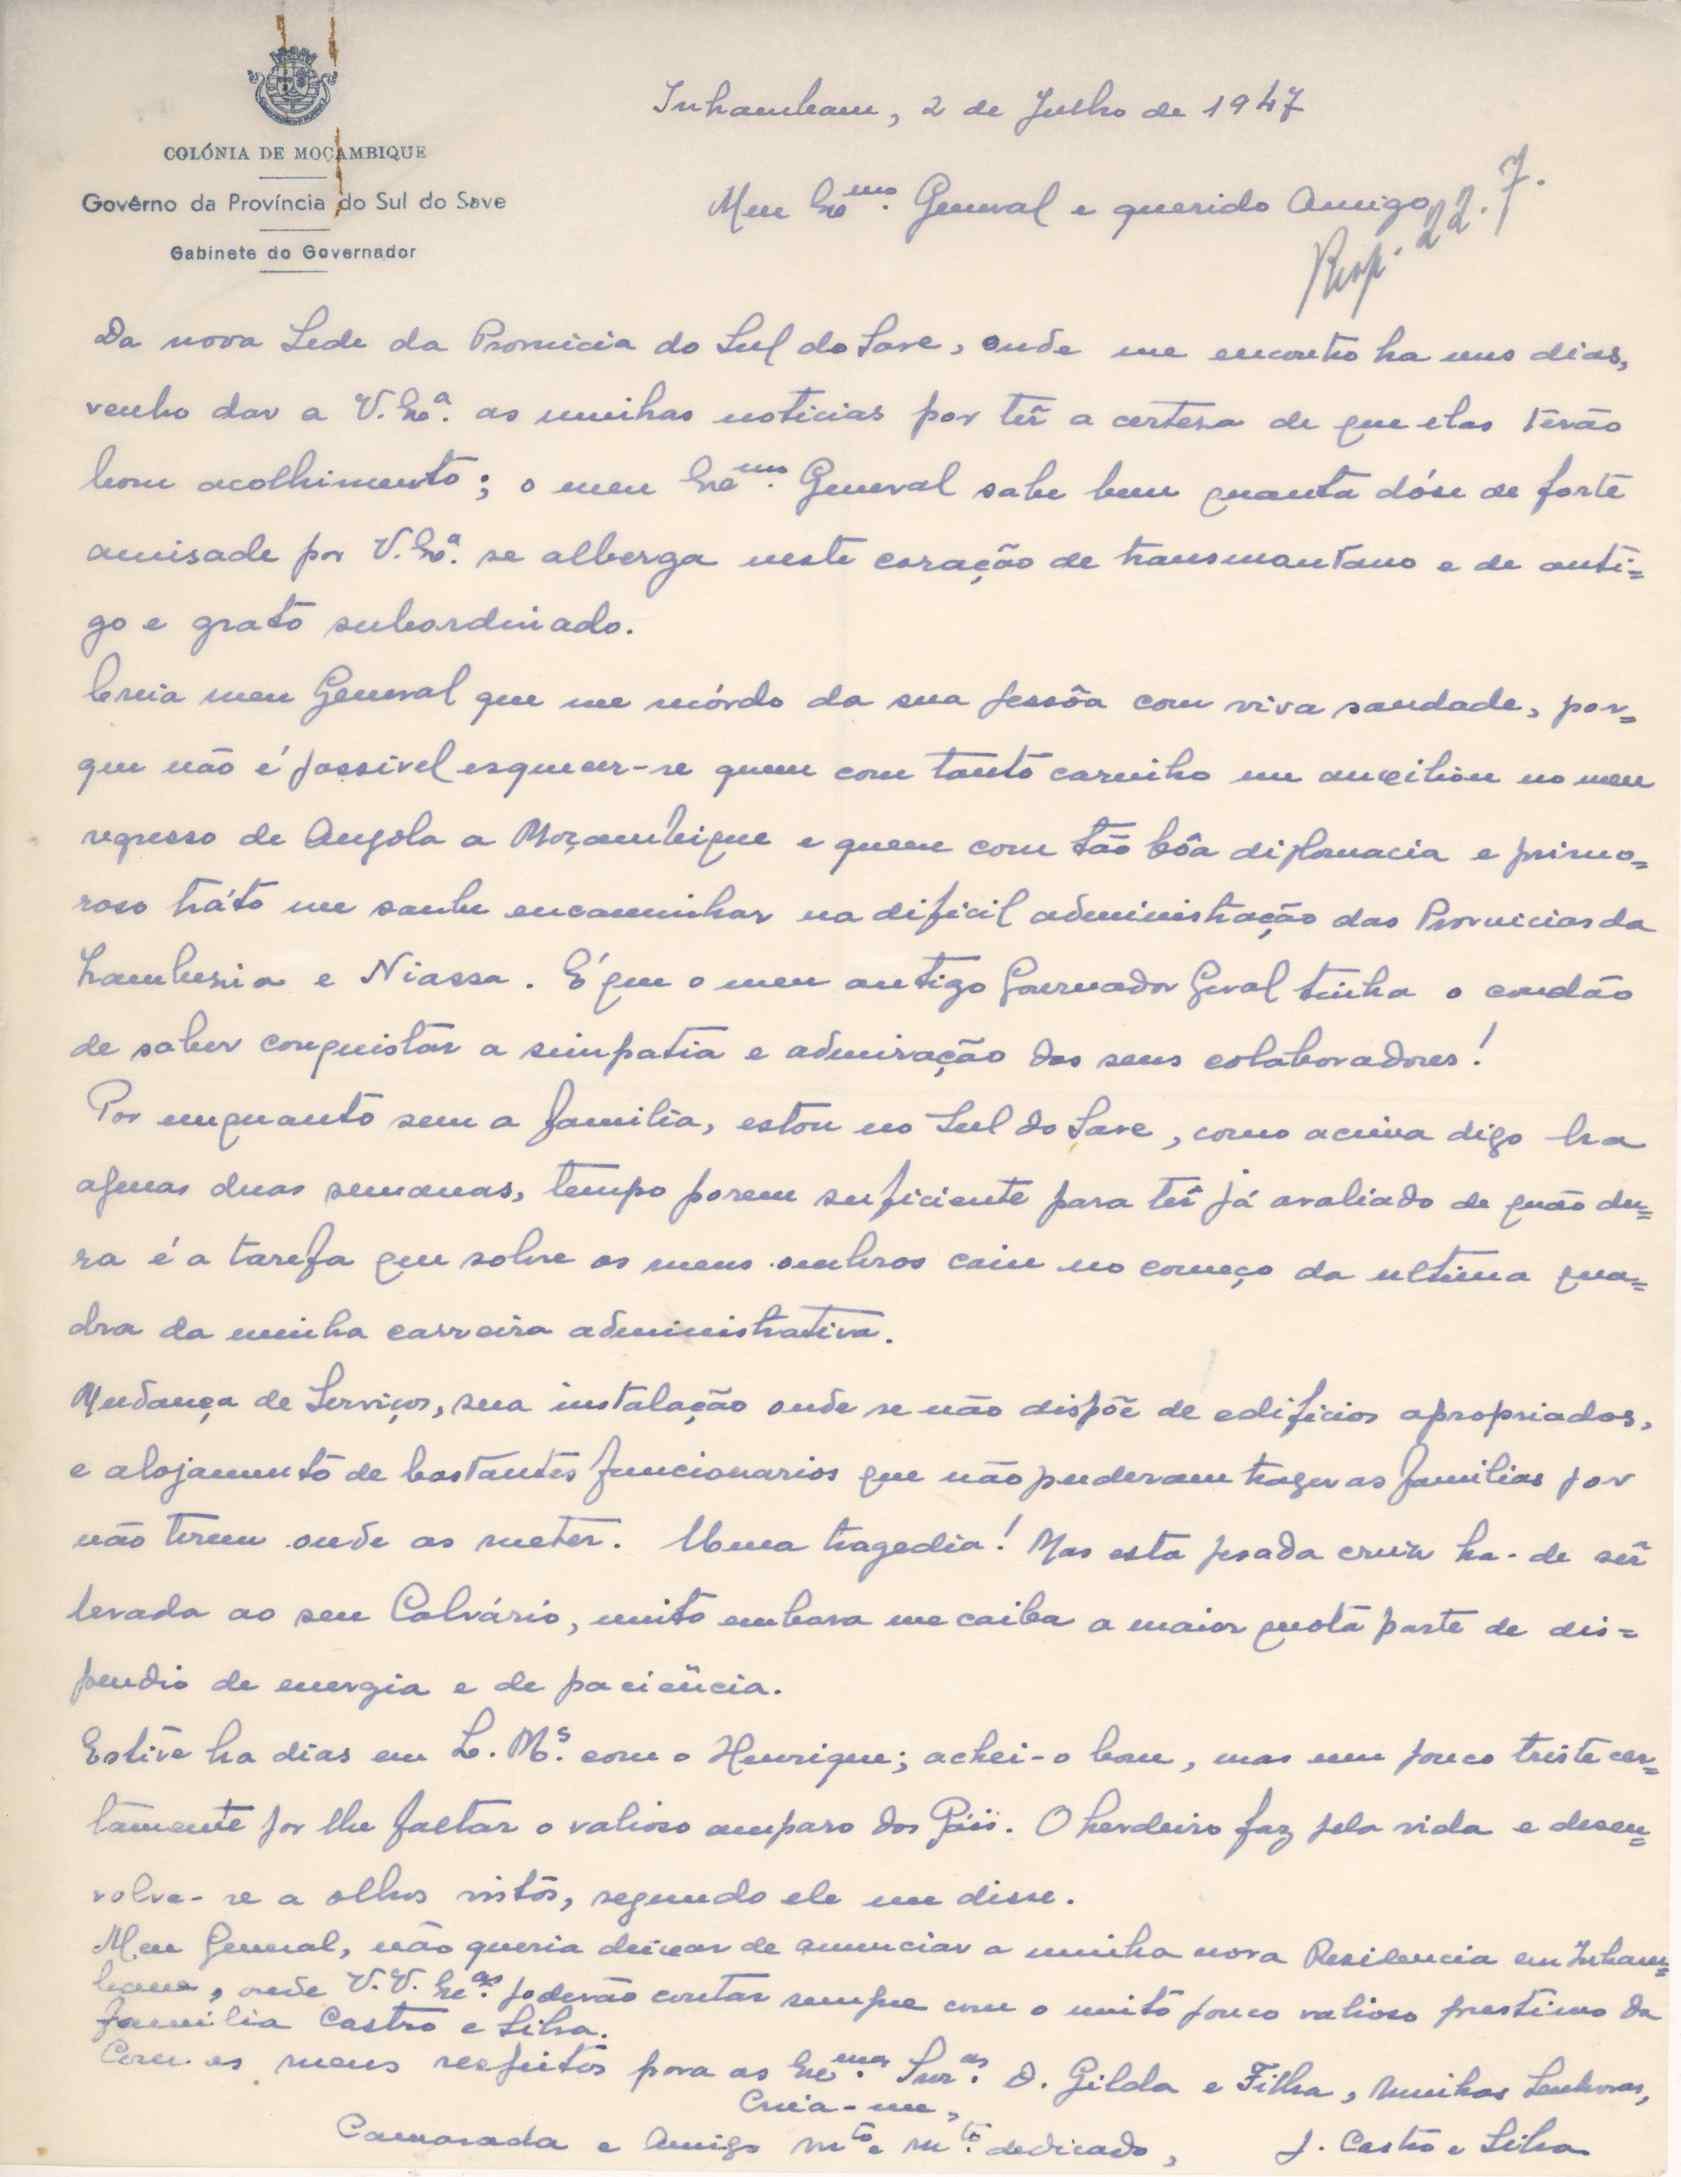 COLÓNIA DE MOÇAMBIQUE
Govêrno da Província do Sul do Save
Gabinete do Governador
Inhambane, 2 de Julho de 1947
Meu Exmo. General e querido Amigo
Resp. 22.7.
Da nova Sede da Provincia do Sul do Save, onde me encontro ha uns dias,
venho dar a V. Exa. as minhas noticias por têr a certesa de que elas terão
bom acolhimento; o meu Exmo. General sabe bem quanta dóse de forte
amisade por V. Exa. se alberga neste coração de transmontano e de anti=
go e grato subordinado.
Creia meu General que me recórdo da sua pessôa com viva saudade, por=
que não é possivel esquecer-se quem com tanto carinho me auxiliou no meu
regresso de Angola a Moçambique e quem com tão bôa diplomacia e primo=
roso tráto me soube encaminhar na dificil administração das Provincias da
Zambesia e Niassa. É que o meu antigo Governador Geral tinha o condão
de saber conquistar a simpatia e admiração dos seus colaboradores!
Por enquanto sem a familia, estou no Sul do Save, como acima digo ha
apenas duas semanas, tempo porem suficiente para têr já avaliado de quão du=
ra é a tarefa que sobre os meus ombros caiu no começo da ultima qua=
dra da minha carreira administrativa.
Mudança de Serviços, sua instalação onde se não dispõe de edificios apropriados,
e alojamento de bastantes funcionarios que não puderam trazer as familias por
não terem onde as meter. Uma tragedia! Mas esta pesada cruz ha-de sêr
levada ao seu Calvário, muito embora me caiba a maior quota parte de dis=
pendio de energia e de paciência.
Estive ha dias em L. Ms. com o Henrique; achei-o bom, mas um pouco triste cer=
tamente por lhe faltar o valioso amparo dos Pais. O herdeiro faz pela vida e desen=
volve-se a olhos vistos, segundo ele me disse.
Meu General, não queria deixar de anunciar a minha nova Residencia em Inham=
bane, onde V. V. Exas. poderão contar sempre com o muito pouco valioso prestimo da
familia Castro e Silva.
Com os meus respeitos para as Exmas. Snras. D. Gilda e Filha, minhas Senhoras,
Creia-me,
Camarada e Amigo mto. e mto. dedicado,
J. Castro e Silva